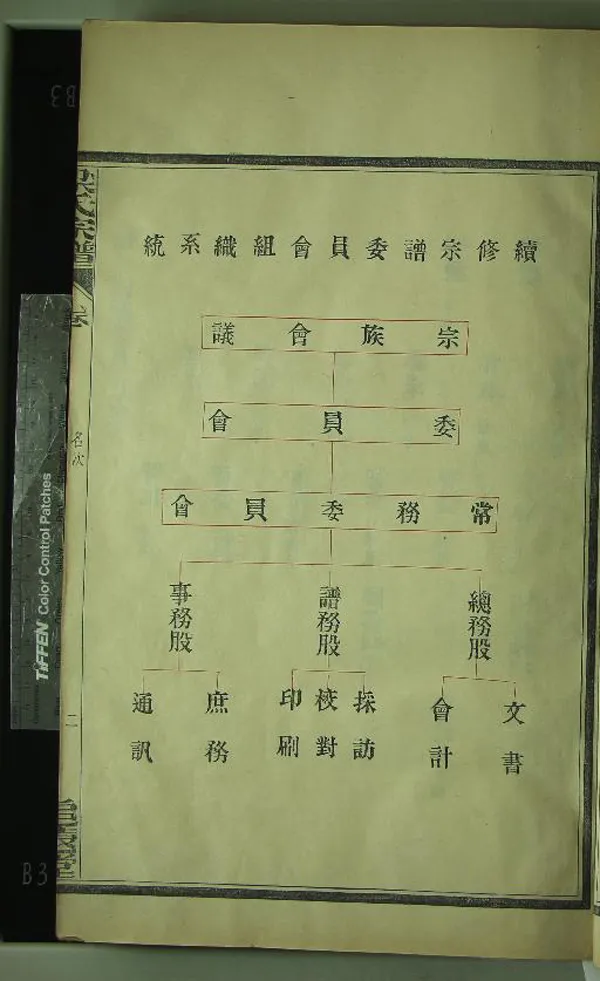 續修宗譜委員會組織系統
宗族會議
委員會
常務委員會
總務股
譜務股
事務股
文書
會計
採訪
校對
印刷
庶務
通訊
氏宗譜
卷
名次
二
TIFFEN Color Control Patches
B3
B3